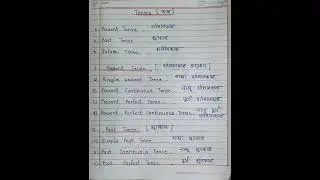 Tenses [ काळ ]
Present Tense - वर्तमानकाळ
Past Tense - भूतकाळ
Future Tense - भविष्यकाळ
Present Tense
Simple present Tense - साधा वर्तमानकाळ
Present Continuous Tense - चालू वर्तमानकाळ
Present Perfect Tense - पूर्ण वर्तमानकाळ
Present Perfect Continuous Tense - चालू पूर्ण वर्तमानकाळ
Past Tense [ भूतकाळ ]
Simple Past Tense - साधा भूतकाळ
Past Continuous Tense - चालू भूतकाळ
Past Perfect Tense - पूर्ण भूतकाळ